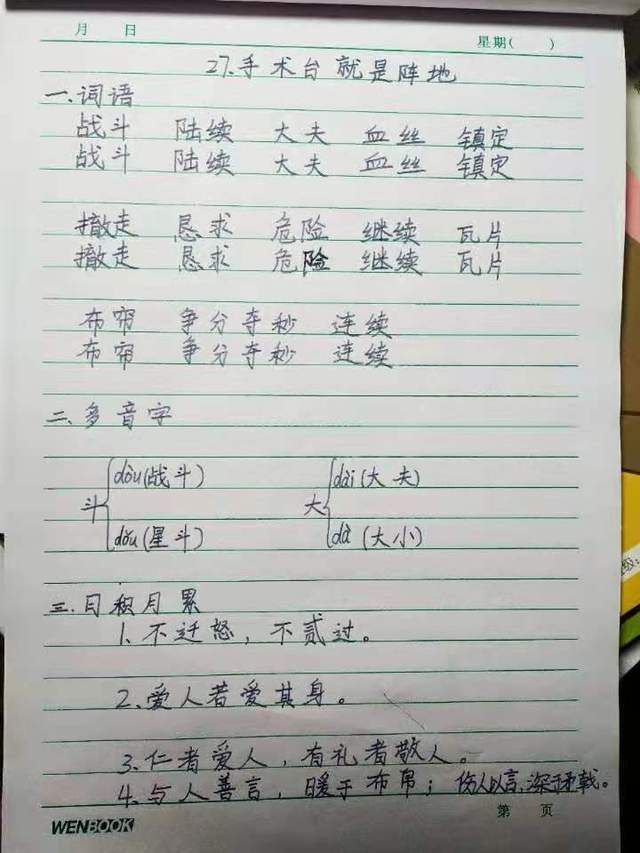 月 日
星期( )
27.手术台就是阵地
一.词语
战斗 陆续 大夫 血丝 镇定
战斗 陆续 大夫 血丝 镇定
撤走 恳求 危险 继续 瓦片
撤走 恳求 危险 继续 瓦片
布帘 争分夺秒 连续
布帘 争分夺秒 连续
二.多音字
斗 dòu(战斗) 大 dài(大夫)
dǒu(星斗) dà(大小)
三.日积月累
1.不迁怒，不贰过。
2.爱人若爱其身。
3.仁者爱人，有礼者敬人。
4.与人善言，暖于布帛；伤人以言，深于矛戟。
WENBOOK
第 页